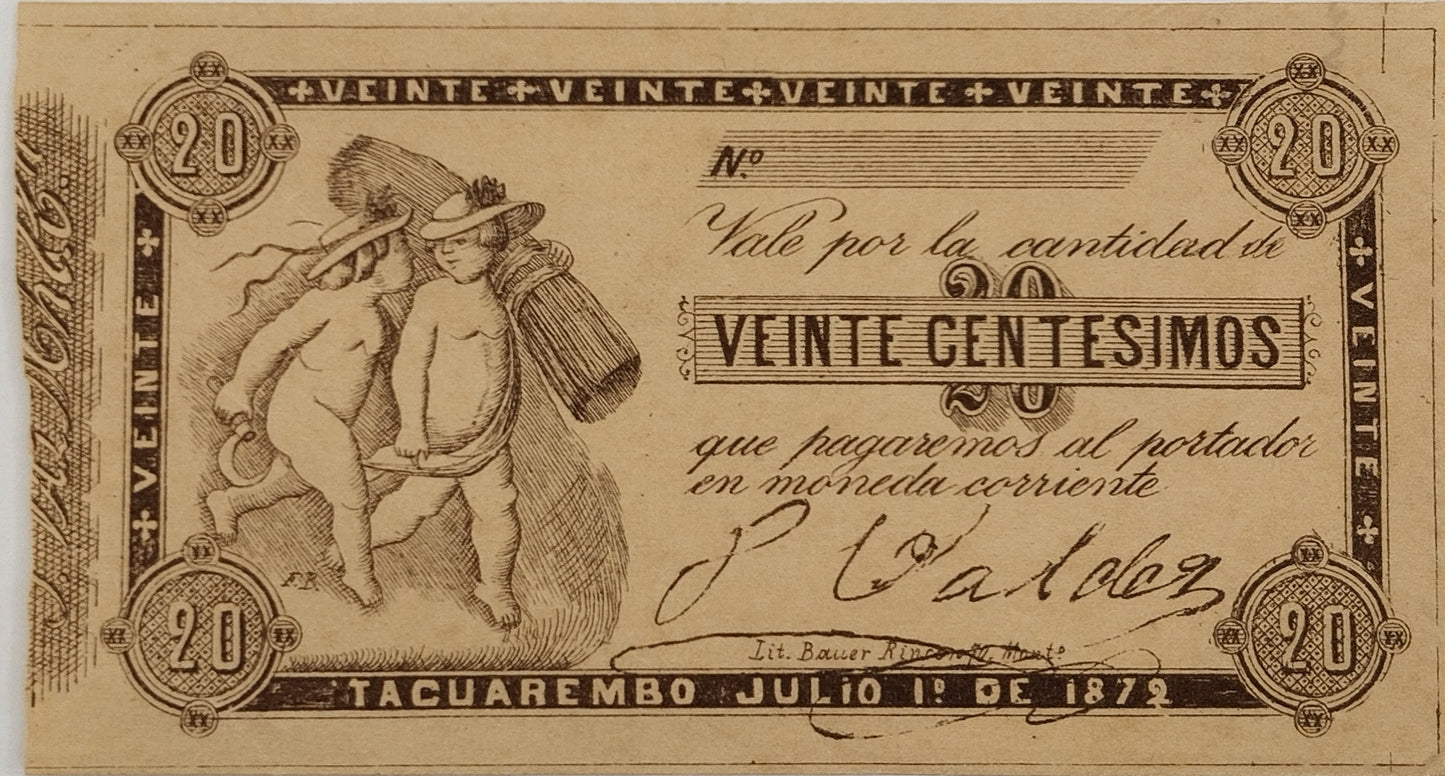 +VEINTE+VEINTE+VEINTE+VEINTE+
XX
20
XX XX
XX
XX
20
XX XX
XX
Nº
Vale por la cantidad de
20
VEINTE CENTESIMOS
20
que pagaremos al portador
en moneda corriente
P Valdez
+VEINTE+
+VEINTE+
XX
20
XX XX
XX
XX
20
XX XX
XX
Lit. Bauer Monto
TACUAREMBO JULIO 1º DE 1872